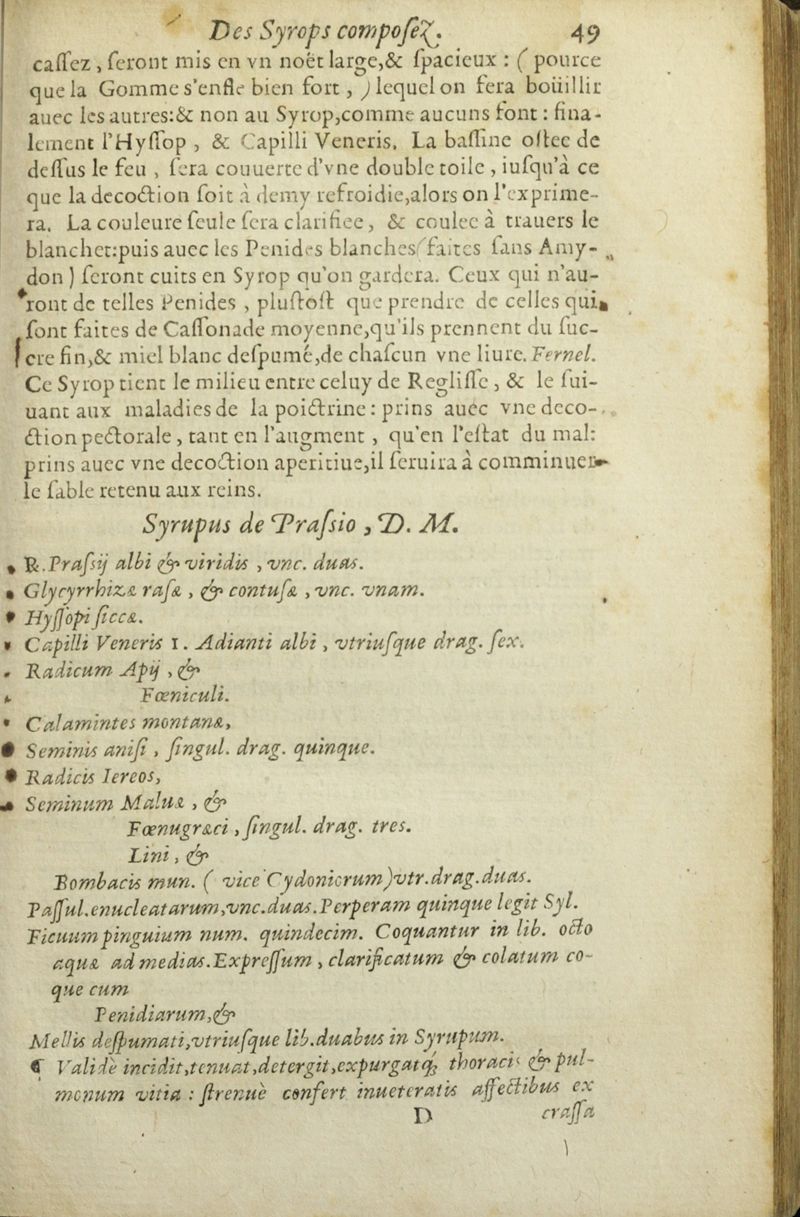 Des Syrops composez. 49
cassez, seront mis en vn noët large,& spacieux : ( pource
que la Gomme s'enfle bien fort, ) lequel on fera boüillir
auec les autres:& non au Syrop,comme aucuns font : fina-
lement l'Hyssop , & Capilli Veneris. La bassine ostee de
dessus le feu , sera couuerte d'vne double toile , iusqu'à ce
que la decoction soit à demy refroidie,alors on l'exprime-
ra. La couleure seule sera clarifiee, & coulee à trauers le
blanchet:puis auec les Penides blanches(faites sans Amy-
don ) seront cuits en Syrop qu'on gardera. Ceux qui n'au-
ront de telles Penides , plustost que prendre de celles qui
sont faites de Cassonade moyenne,qu'ils prennent du suc-
cre fin,& miel blanc despumé,de chascun vne liure. Fernel.
Ce Syrop tient le milieu entre celuy de Reglisse , & le sui-
uant aux maladies de la poictrine : prins auec vne deco-
ction pectorale , tant en l'augment , qu'en l'estat du mal:
prins auec vne decoction aperitiue,il seruira à comminuer
le sable retenu aux reins.
Syrupus de Prassio , D. M.
℞. Prassij albi & viridis , vnc. duas.
Glycyrrhizæ rasæ , & contusæ , vnc. vnam.
Hyssopi siccæ.
Capilli Veneris 1. Adianti albi , vtriusque drag. sex.
Radicum Apij , &
Fœniculi.
Calamintes montanæ,
Seminis anisi , singul. drag. quinque.
Radicis Iereos,
Seminum Maluæ , &
Fœnugræci , singul. drag. tres.
Lini , &
Bombacis mun. ( vice Cydoniorum)vtr.drag.duas.
Passul.enucleatarum,vnc.duas.Perperam quinque legit Syl.
Ficuum pinguium num. quindecim. Coquantur in lib. octo
aquæ ad medias.Expressum , clarificatum & colatum co-
que cum
Penidiarum,&
Mellis despumati,vtriusque lib.duabus in Syrupum.
¶ Valide incidit,tenuat,detergit,expurgatq; thoracis & pul-
monum vitia : strenuè confert inueteratis affectibus ex
D crassa